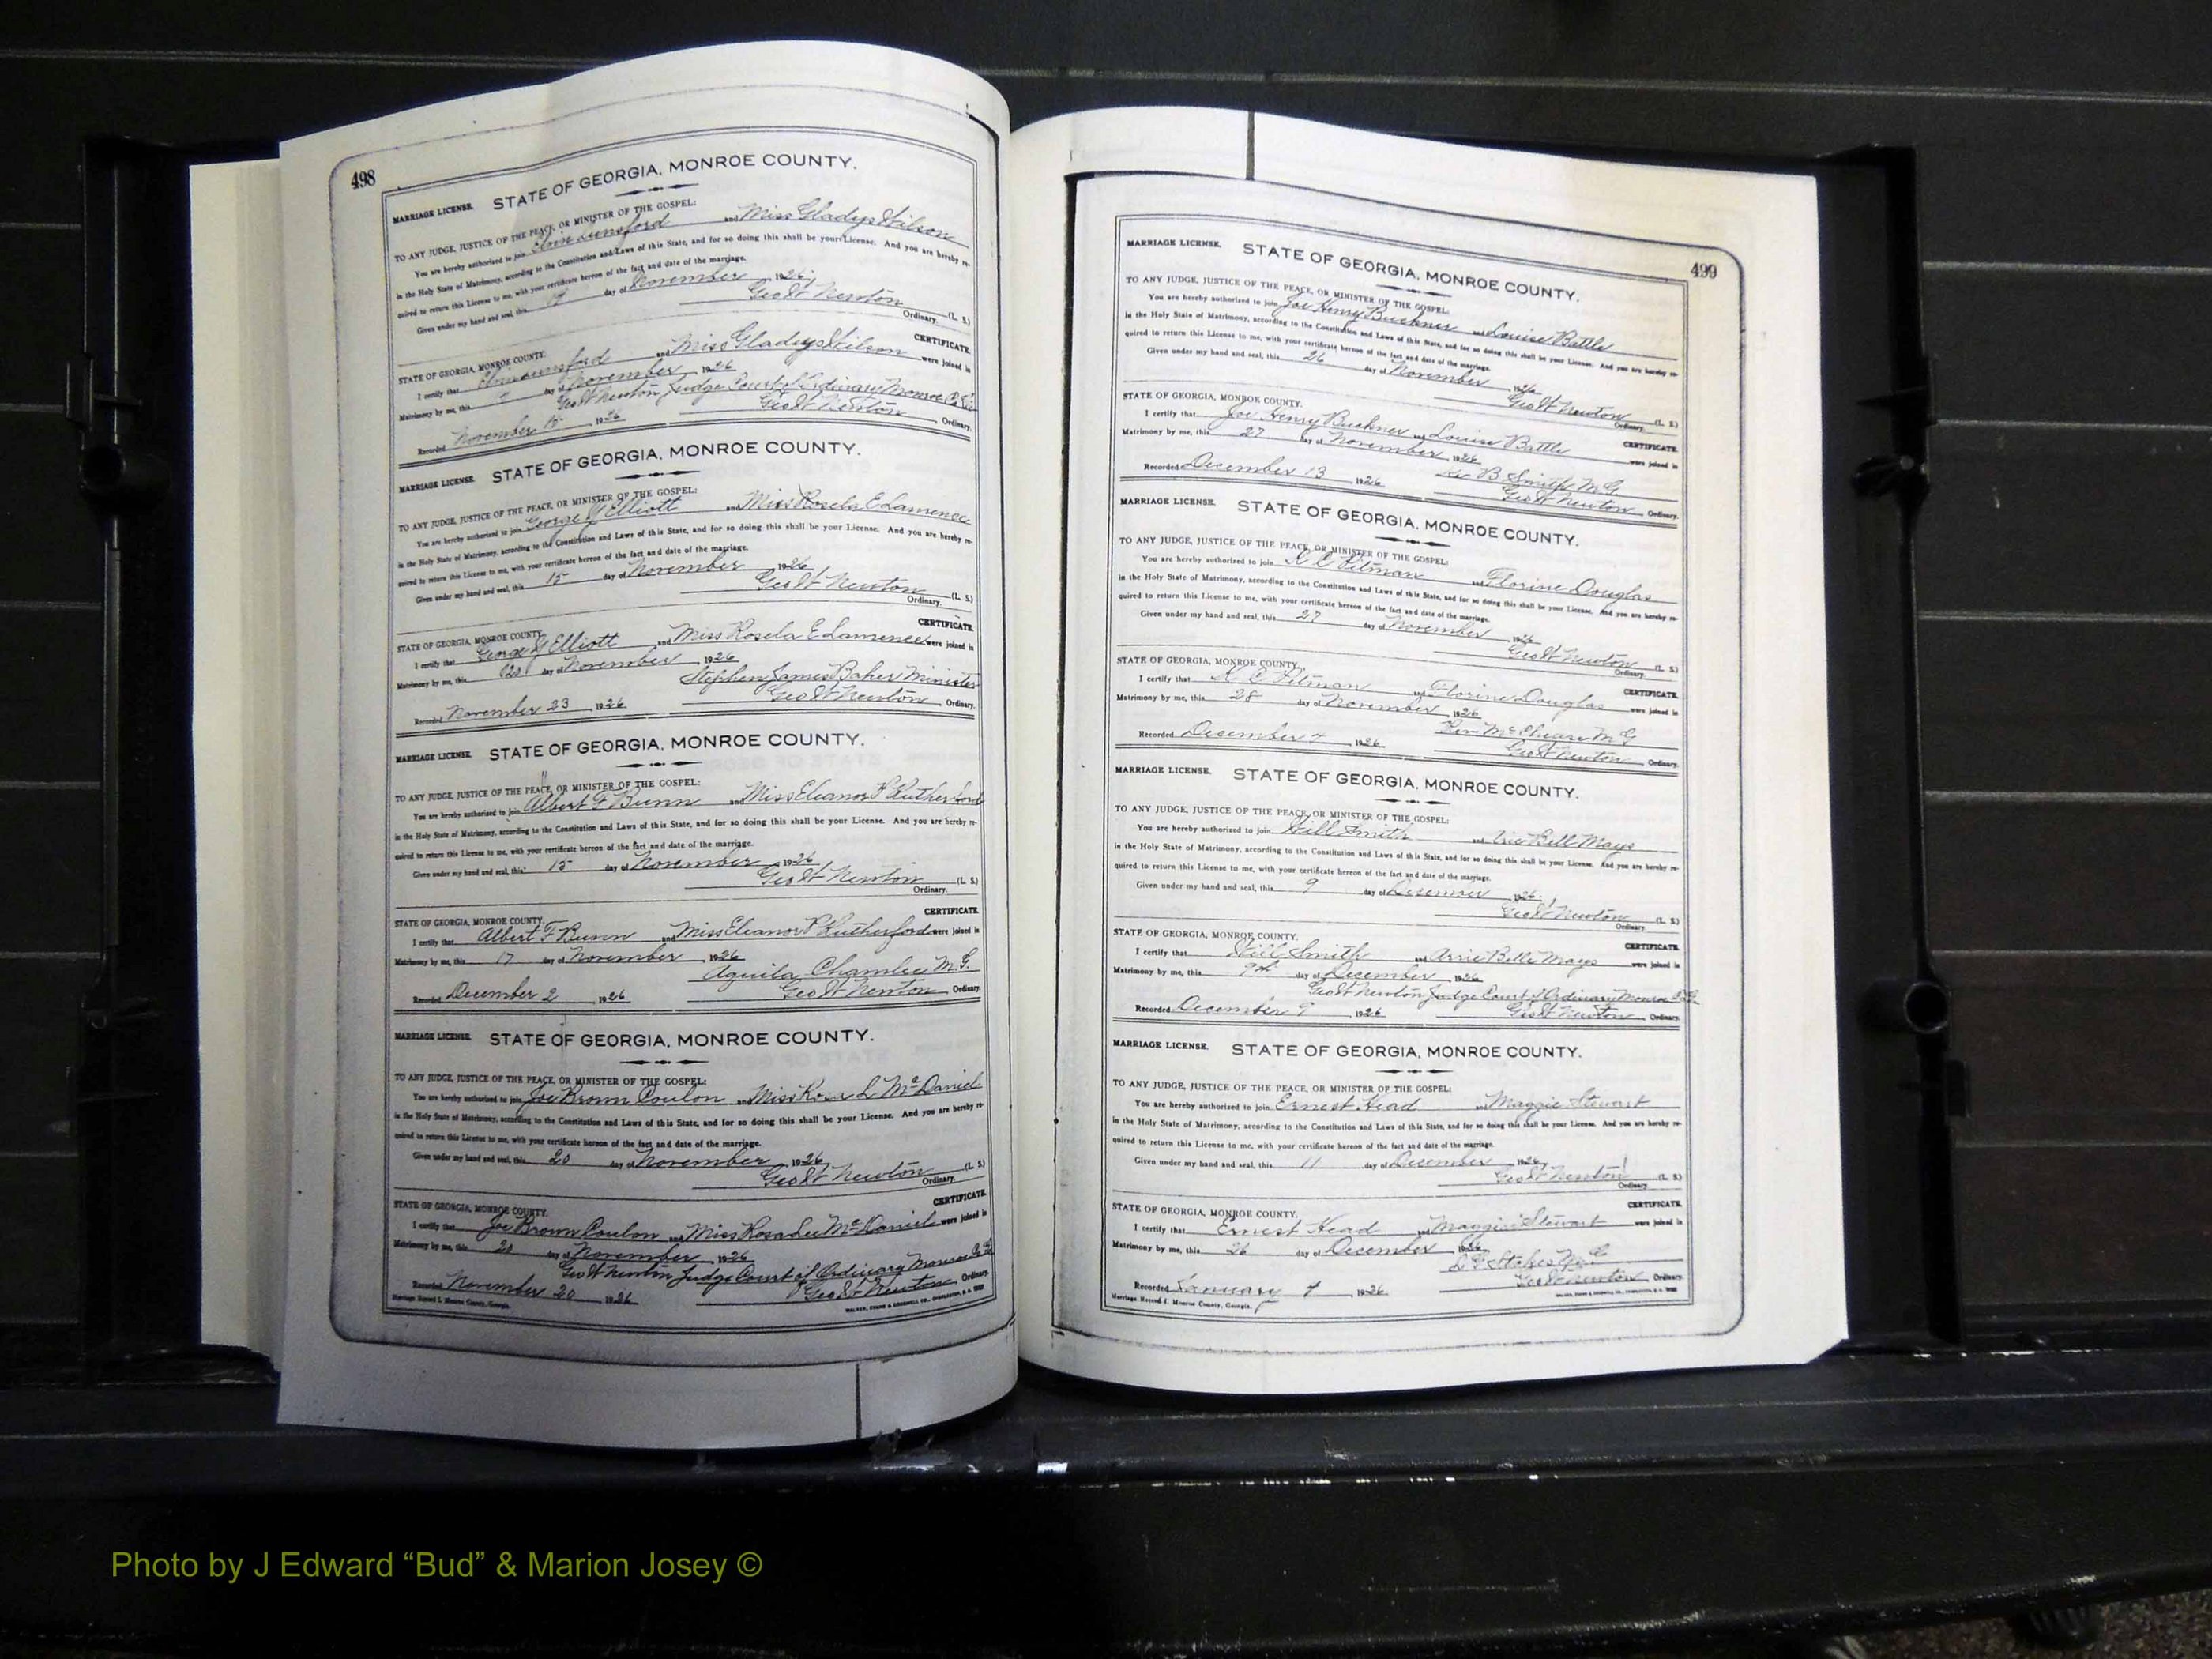 498
MARRIAGE LICENSE. STATE OF GEORGIA, MONROE COUNTY.
TO ANY JUDGE, JUSTICE OF THE PEACE, OR MINISTER OF THE GOSPEL:
You are hereby authorized to join Lunsford and Miss Gladys Wilson
in the Holy State of Matrimony, according to the Constitution and Laws of this State, and for so doing this shall be your License. And you are hereby re-
quired to return this License to me, with your certificate hereon of the fact and date of the marriage.
Given under my hand and seal, this day of November, 1926.
Geo W Newton (L. S.)
Ordinary.
STATE OF GEORGIA, MONROE COUNTY. CERTIFICATE.
I certify that Lunsford and Miss Gladys Wilson were joined in
Matrimony by me, this day of November, 1926
Geo W Newton Judge Court of Ordinary Monroe Co Ga
Recorded November 15, 1926 Geo W Newton Ordinary.
MARRIAGE LICENSE. STATE OF GEORGIA, MONROE COUNTY.
TO ANY JUDGE, JUSTICE OF THE PEACE, OR MINISTER OF THE GOSPEL:
You are hereby authorized to join George J Elliott and Miss Rosela E Lawrence
in the Holy State of Matrimony, according to the Constitution and Laws of this State, and for so doing this shall be your License. And you are hereby re-
quired to return this License to me, with your certificate hereon of the fact and date of the marriage.
Given under my hand and seal, this 15 day of November, 1926,
Geo W Newton (L. S.)
Ordinary.
STATE OF GEORGIA, MONROE COUNTY. CERTIFICATE.
I certify that George J Elliott and Miss Rosela E Lawrence were joined in
Matrimony by me, this 20 day of November, 1926
Stephen James Baker Minister
Recorded November 23, 1926 Geo W Newton, Ordinary.
MARRIAGE LICENSE. STATE OF GEORGIA, MONROE COUNTY.
TO ANY JUDGE, JUSTICE OF THE PEACE, OR MINISTER OF THE GOSPEL:
You are hereby authorized to join Albert F Bunn and Miss Eleanor P Rutherford
in the Holy State of Matrimony, according to the Constitution and Laws of this State, and for so doing this shall be your License. And you are hereby re-
quired to return this License to me, with your certificate hereon of the fact and date of the marriage.
Given under my hand and seal, this 15 day of November, 1926,
Geo W Newton (L. S.)
Ordinary.
STATE OF GEORGIA, MONROE COUNTY. CERTIFICATE.
I certify that Albert F Bunn and Miss Eleanor P Rutherford were joined in
Matrimony by me, this 17 day of November, 1926
Aquila Chamlee M.G.
Recorded December 2, 1926 Geo W Newton Ordinary.
MARRIAGE LICENSE. STATE OF GEORGIA, MONROE COUNTY.
TO ANY JUDGE, JUSTICE OF THE PEACE, OR MINISTER OF THE GOSPEL:
You are hereby authorized to join Joe Brown Coulon and Miss Rosa L McDaniel
in the Holy State of Matrimony, according to the Constitution and Laws of this State, and for so doing this shall be your License. And you are hereby re-
quired to return this License to me, with your certificate hereon of the fact and date of the marriage.
Given under my hand and seal, this 20 day of November, 1926
Geo W Newton (L. S.)
Ordinary.
STATE OF GEORGIA, MONROE COUNTY. CERTIFICATE.
I certify that Joe Brown Coulon and Miss Rosa Lee McDaniel were joined in
Matrimony by me, this 20 day of November, 1926
Geo W Newton Judge Court of Ordinary Monroe Co Ga
Recorded November 20, 1926 Geo W Newton Ordinary.
Marriage Record I. Monroe County, Georgia. WALKER, EVANS & COGSWELL CO., CHARLESTON, S. C.
499
MARRIAGE LICENSE. STATE OF GEORGIA, MONROE COUNTY.
TO ANY JUDGE, JUSTICE OF THE PEACE, OR MINISTER OF THE GOSPEL:
You are hereby authorized to join Joe Henry Buckner and Louise Battle
in the Holy State of Matrimony, according to the Constitution and Laws of this State, and for so doing this shall be your License. And you are hereby re-
quired to return this License to me, with your certificate hereon of the fact and date of the marriage.
Given under my hand and seal, this 26 day of November, 1926
Geo W Newton (L. S.)
Ordinary.
STATE OF GEORGIA, MONROE COUNTY. CERTIFICATE.
I certify that Joe Henry Buckner and Louise Battle were joined in
Matrimony by me, this 27 day of November, 1926
B Smith M.G.
Recorded December 13, 1926 Geo W Newton, Ordinary.
MARRIAGE LICENSE. STATE OF GEORGIA, MONROE COUNTY.
TO ANY JUDGE, JUSTICE OF THE PEACE, OR MINISTER OF THE GOSPEL:
You are hereby authorized to join C Pitman and Florine Douglas
in the Holy State of Matrimony, according to the Constitution and Laws of this State, and for so doing this shall be your License. And you are hereby re-
quired to return this License to me, with your certificate hereon of the fact and date of the marriage.
Given under my hand and seal, this 27 day of November, 1926
Geo W Newton (L. S.)
Ordinary.
STATE OF GEORGIA, MONROE COUNTY. CERTIFICATE.
I certify that C Pitman and Florine Douglas were joined in
Matrimony by me, this 28 day of November, 1926
Rev M.G
Recorded December 4, 1926 Geo W Newton, Ordinary.
MARRIAGE LICENSE. STATE OF GEORGIA, MONROE COUNTY.
TO ANY JUDGE, JUSTICE OF THE PEACE, OR MINISTER OF THE GOSPEL:
You are hereby authorized to join Will Smith and Bell Mays
in the Holy State of Matrimony, according to the Constitution and Laws of this State, and for so doing this shall be your License. And you are hereby re-
quired to return this License to me, with your certificate hereon of the fact and date of the marriage.
Given under my hand and seal, this 9 day of December, 1926,
Geo W Newton (L. S.)
Ordinary.
STATE OF GEORGIA, MONROE COUNTY. CERTIFICATE.
I certify that Will Smith and Arrie Belle Mays were joined in
Matrimony by me, this 9th day of December, 1926
Geo W Newton Judge Court of Ordinary Monroe Co Ga
Recorded December 9, 1926 Geo W Newton, Ordinary.
MARRIAGE LICENSE. STATE OF GEORGIA, MONROE COUNTY.
TO ANY JUDGE, JUSTICE OF THE PEACE, OR MINISTER OF THE GOSPEL:
You are hereby authorized to join Ernest Head and Maggie Stewart
in the Holy State of Matrimony, according to the Constitution and Laws of this State, and for so doing this shall be your License. And you are hereby re-
quired to return this License to me, with your certificate hereon of the fact and date of the marriage.
Given under my hand and seal, this 11 day of December, 1926,
Geo W Newton (L. S.)
Ordinary.
STATE OF GEORGIA, MONROE COUNTY. CERTIFICATE.
I certify that Ernest Head and Maggie Stewart were joined in
Matrimony by me, this 26 day of December, 1926
Stokes M.G
Recorded January 4, 1926 Geo W Newton, Ordinary.
Marriage Record I. Monroe County, Georgia.
Photo by J Edward “Bud” & Marion Josey ©